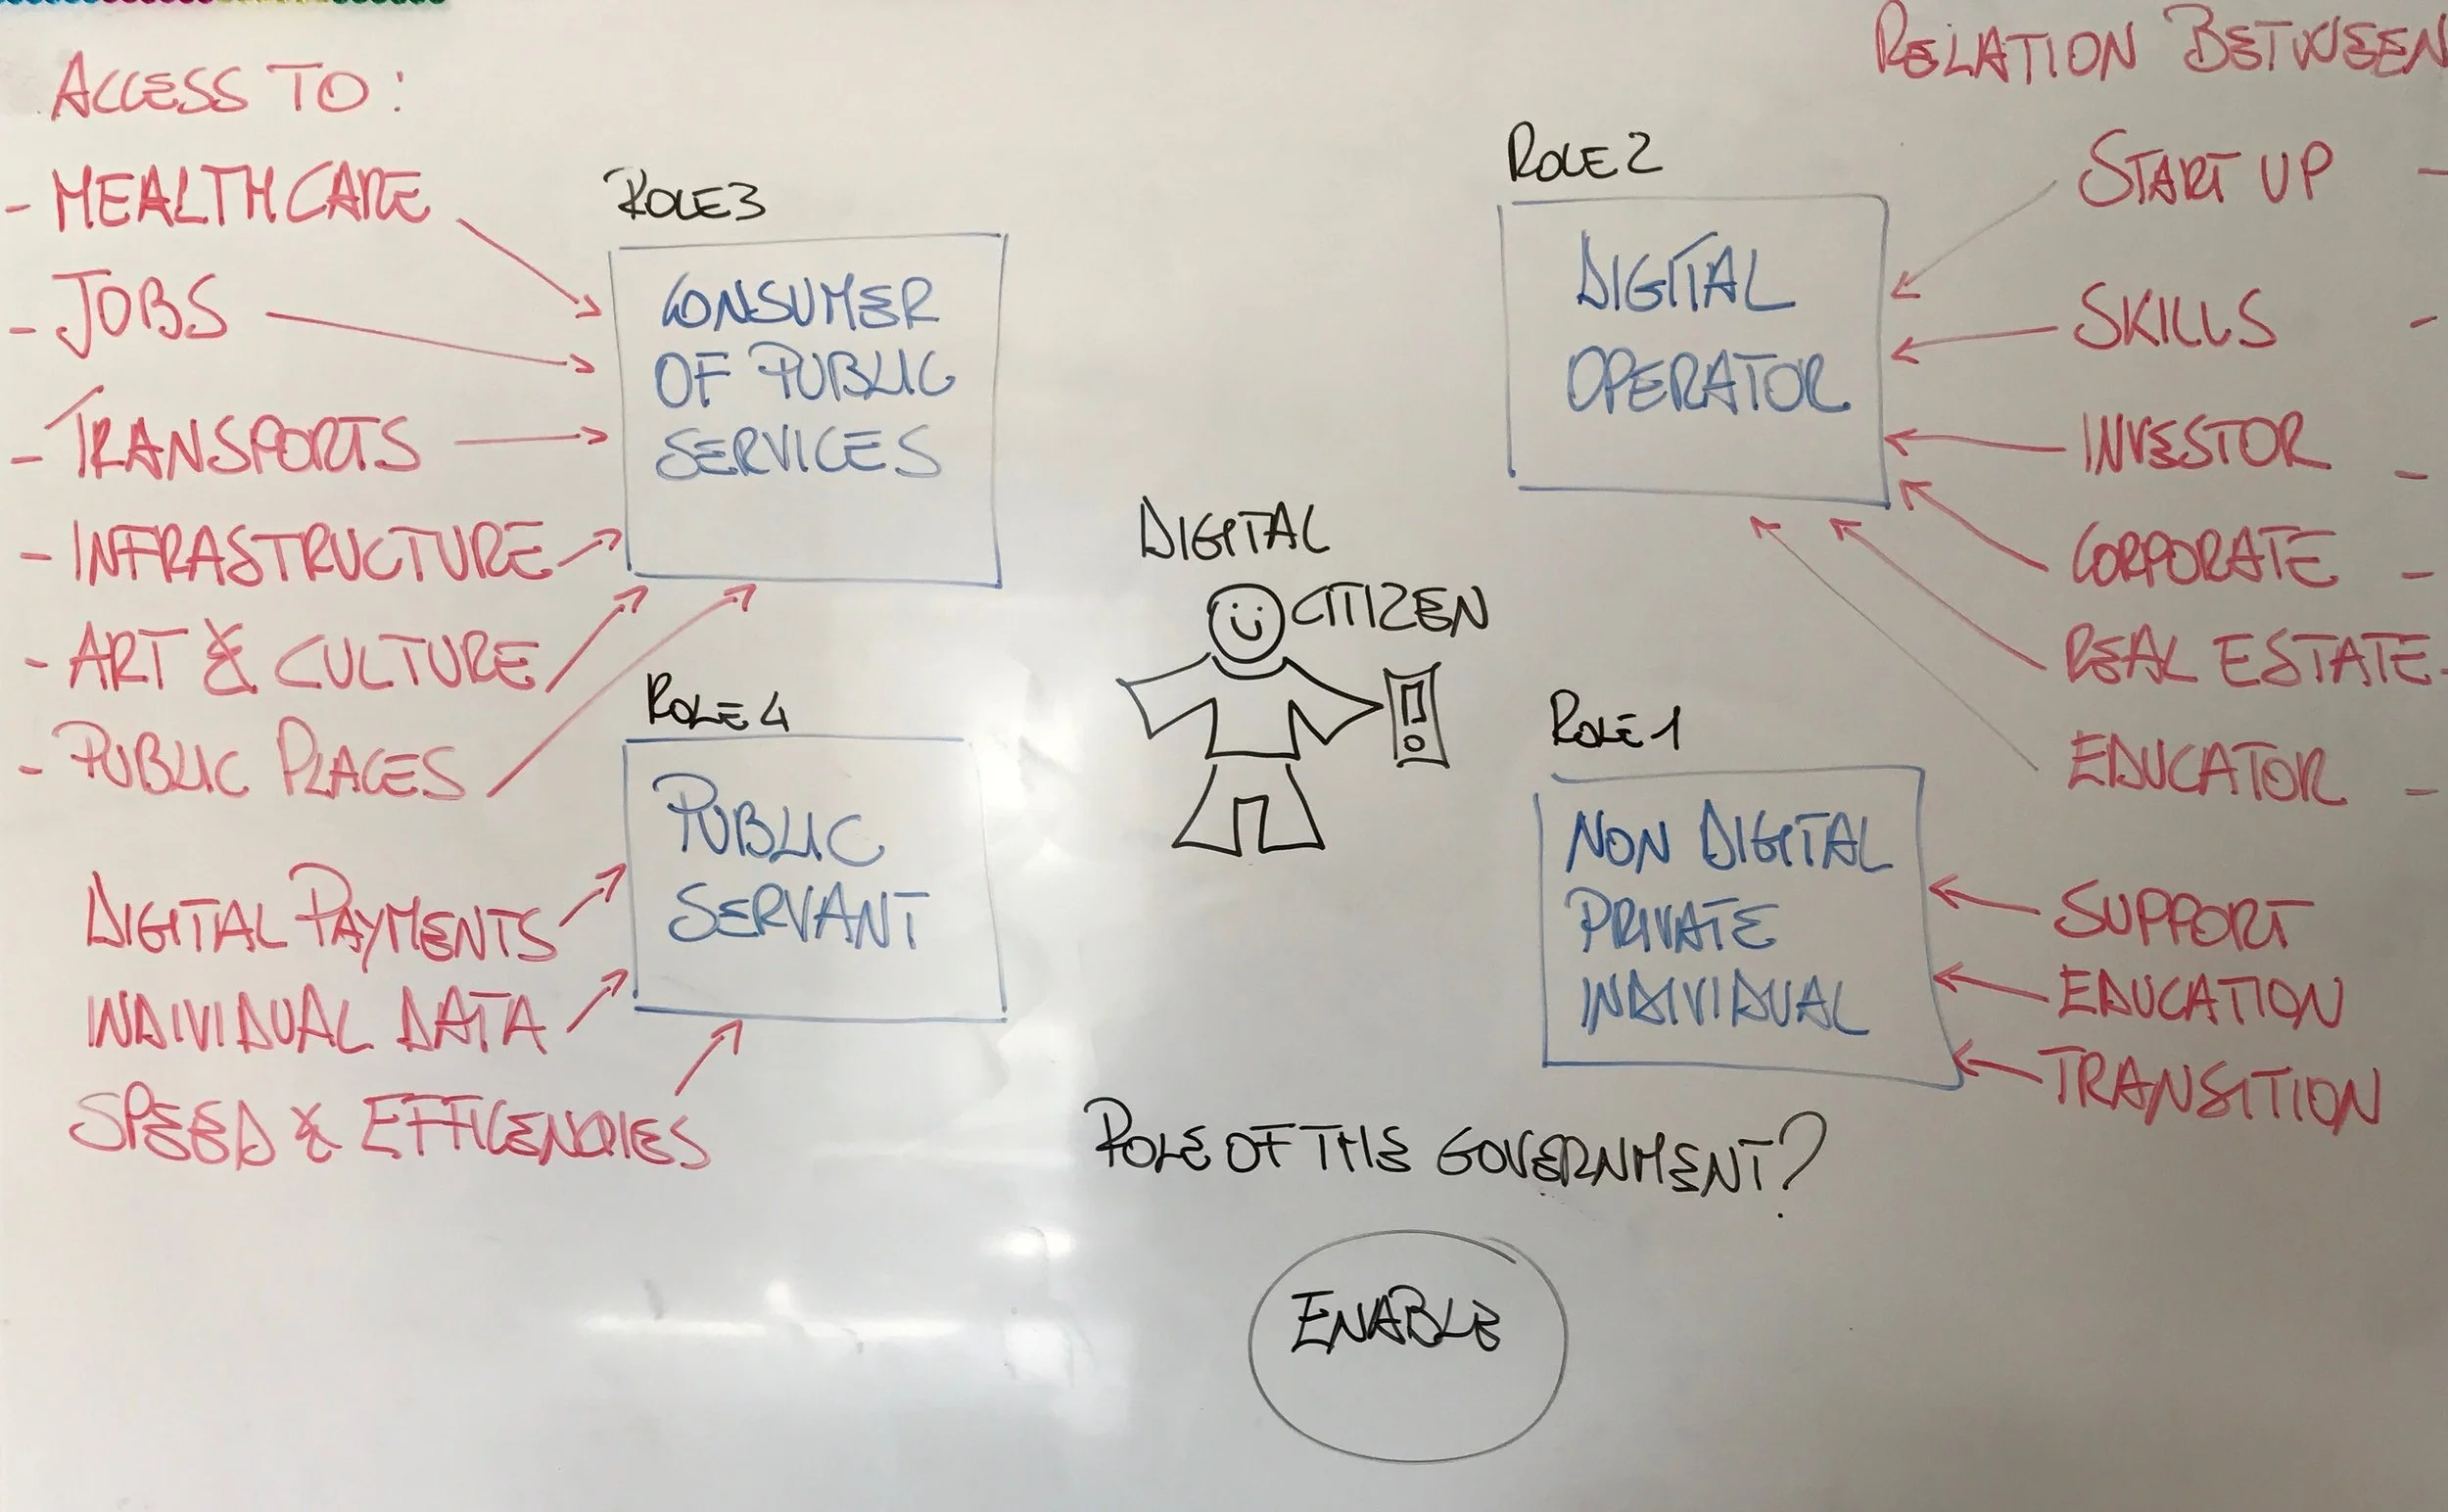 ACCESS TO:
- HEALTHCARE
- JOBS
- TRANSPORTS
- INFRASTRUCTURE
- ART & CULTURE
- PUBLIC PLACES
DIGITAL PAYMENTS
INDIVIDUAL DATA
SPEED & EFFICENCIES
ROLE 3
CONSUMER
OF PUBLIC
SERVICES
ROLE 4
PUBLIC
SERVANT
DIGITAL
CITIZEN
ROLE 2
DIGITAL
OPERATOR
ROLE 1
NON DIGITAL
PRIVATE
INDIVIDUAL
ROLE OF THE GOVERNMENT?
ENABLE
RELATION BETWEEN
START UP -
SKILLS -
INVESTOR -
CORPORATE -
REAL ESTATE -
EDUCATOR -
SUPPORT
EDUCATION
TRANSITION